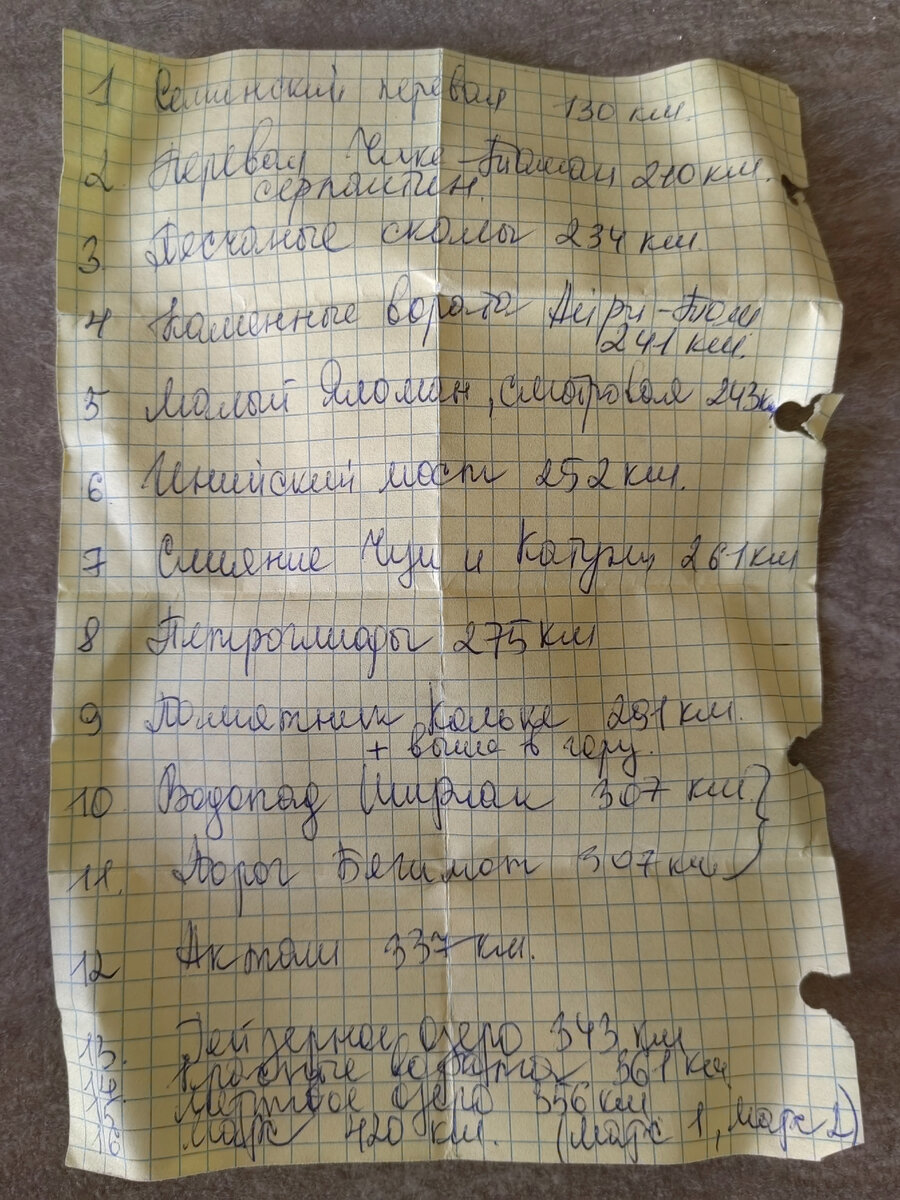 1 Семинский перевал 130 км.
2. Перевал Чике-Таман 210 км.
серпантин.
3 Песчаные скалы 234 км
4 Каменные ворота Айры-Таш
241 км.
5 Малый Яломан, смотровая 243 км
6 Инийский мост 252 км.
7 Слияние Чуи и Катуни 261 км
8 Петроглифы 275 км
9 Памятник Кольке 291 км.
+ выше в гору.
10. Водопад Ширлак 307 км
11. Порог Бегимот 307 км
12 Акташ 337 км.
13. Гейзерное озеро 343 км
14. Красные ворота 361 км
15 Мертвое озеро 356 км
16 Марс 420 км. (Марс 1, Марс 2)